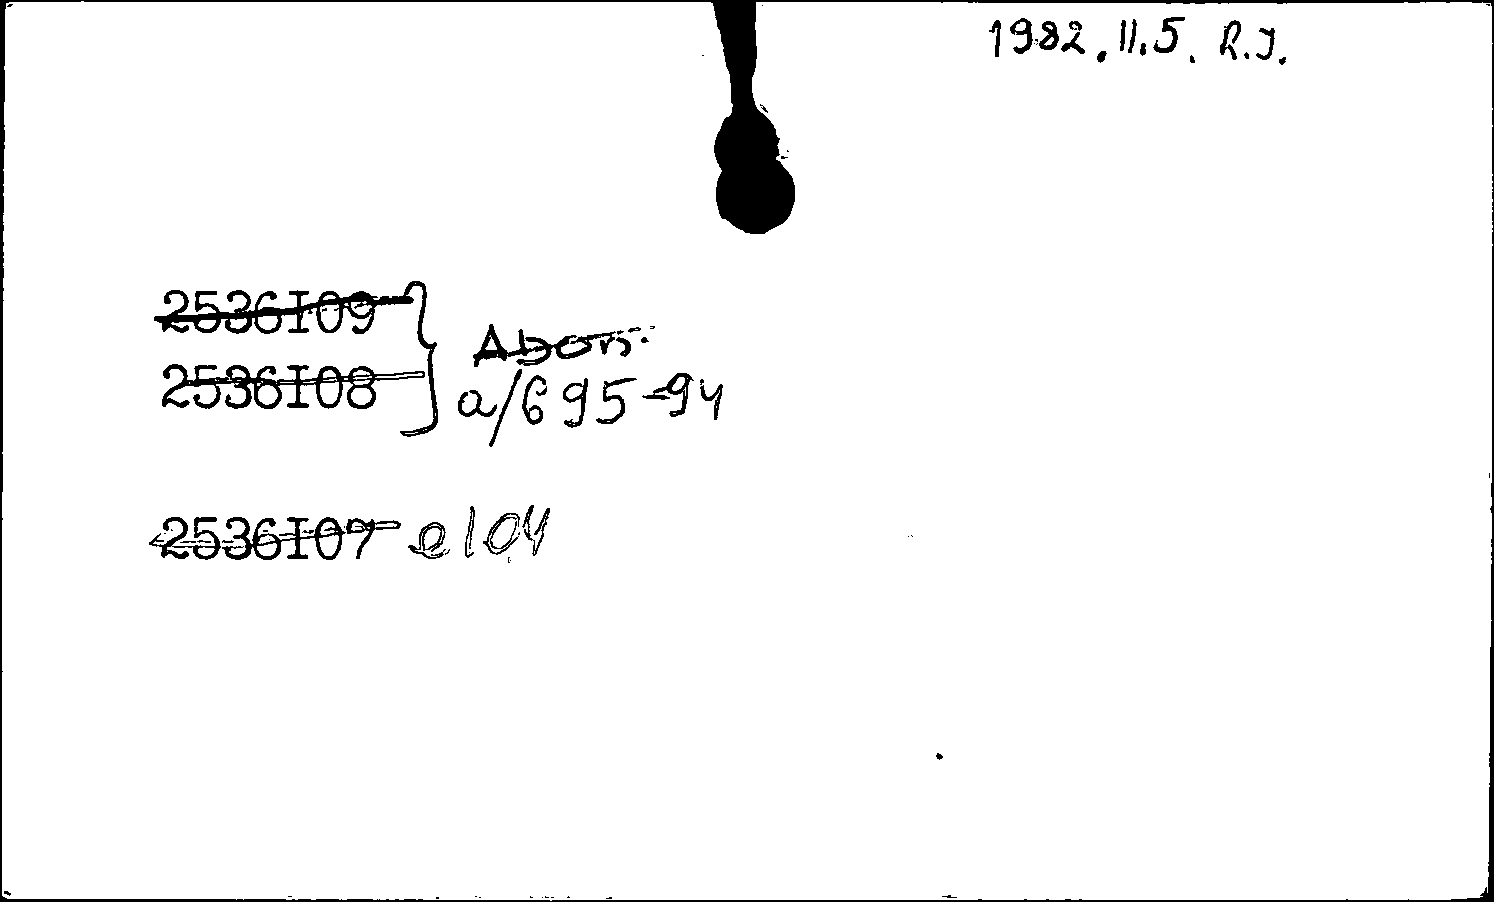 1982.II.5. R.J.
2536I09
Abon.
2536I08
a/695-94
2536I07 e104